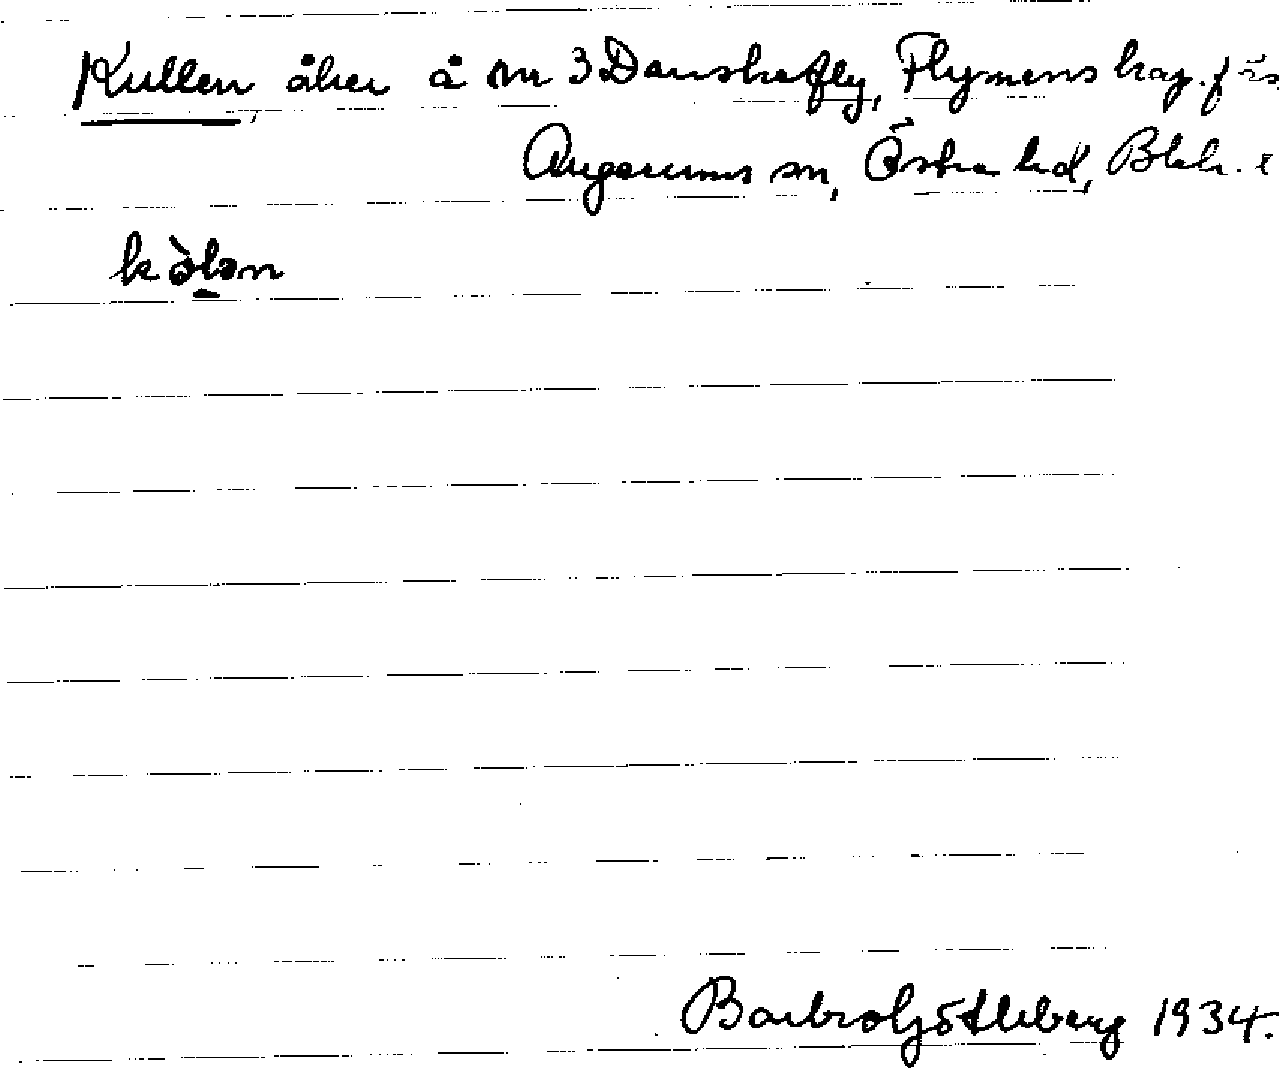 Kullen, åker å nr 3 Danskafly, Flymens kap.förs
Augerums sn, Östra hd, Blek. l
kòlən
Barbro Götleberg 1934.